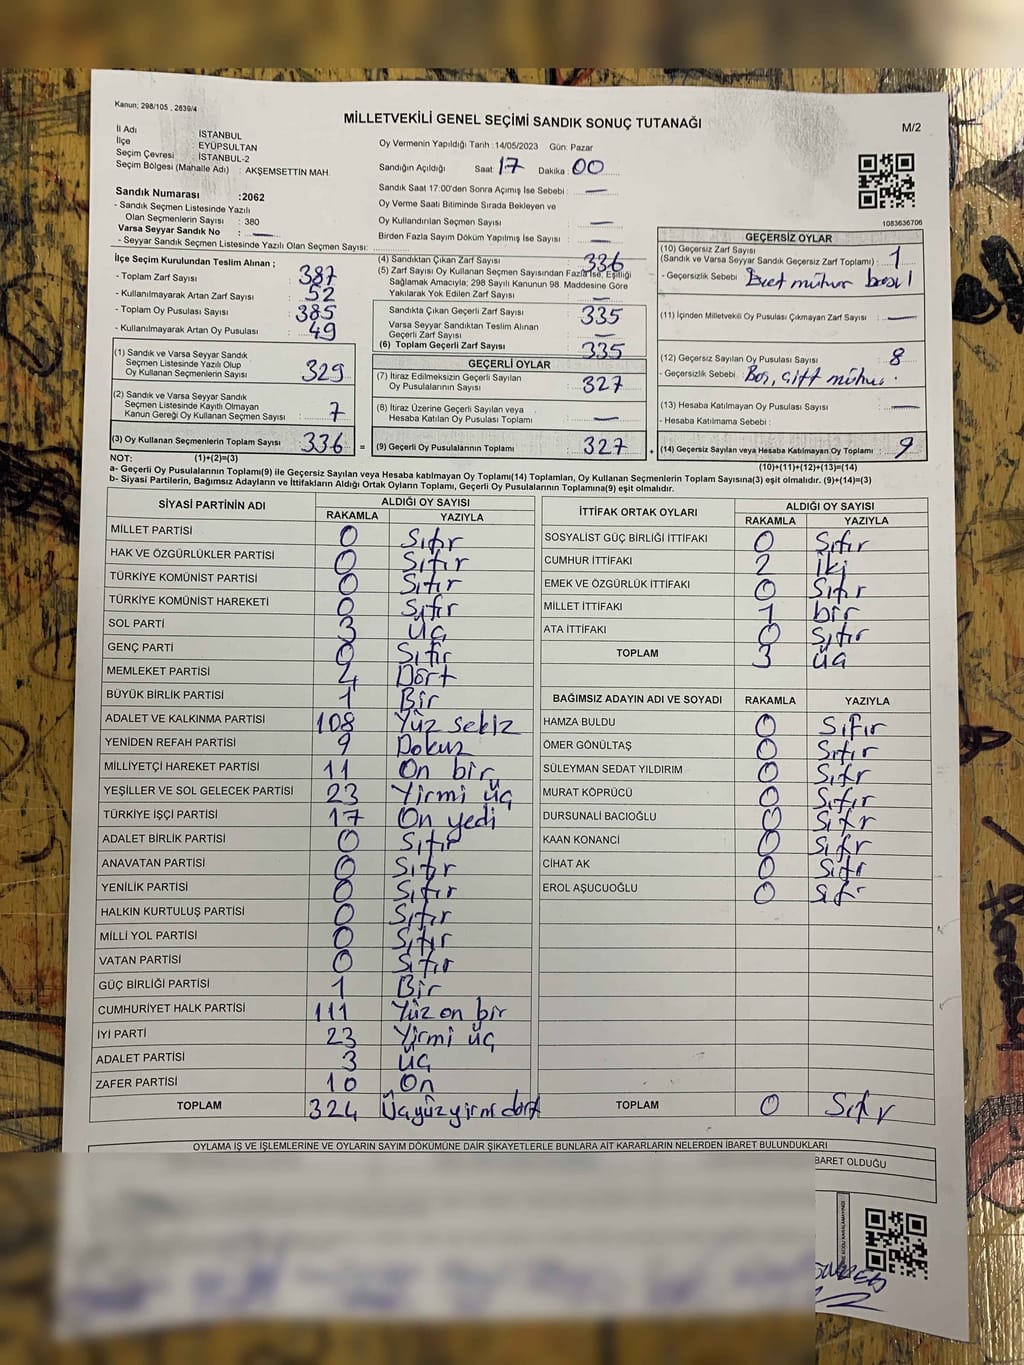 Kanun; 298/105 , 2839/4
MİLLETVEKİLİ GENEL SEÇİMİ SANDIK SONUÇ TUTANAĞI
M/2
İl Adı İSTANBUL
İlçe EYÜPSULTAN
Seçim Çevresi İSTANBUL-2
Seçim Bölgesi (Mahalle Adı) : AKŞEMSETTİN MAH.
Oy Vermenin Yapıldığı Tarih :14/05/2023 Gün: Pazar
Sandığın Açıldığı Saat : 17 Dakika : 00
Sandık Saat 17:00'den Sonra Açımış İse Sebebi : —
Oy Verme Saati Bitiminde Sırada Bekleyen ve
Oy Kullandırılan Seçmen Sayısı : —
Birden Fazla Sayım Döküm Yapılmış İse Sayısı : —
Sandık Numarası :2062
- Sandık Seçmen Listesinde Yazılı
Olan Seçmenlerin Sayısı : 380
Varsa Seyyar Sandık No : —
- Seyyar Sandık Seçmen Listesinde Yazılı Olan Seçmen Sayısı:
1083636706
İlçe Seçim Kurulundan Teslim Alınan ;
- Toplam Zarf Sayısı : 387
- Kullanılmayarak Artan Zarf Sayısı : 52
- Toplam Oy Pusulası Sayısı : 385
- Kullanılmayarak Artan Oy Pusulası : 49
(1) Sandık ve Varsa Seyyar Sandık
Seçmen Listesinde Yazılı Olup
Oy Kullanan Seçmenlerin Sayısı : 329
(2) Sandık ve Varsa Seyyar Sandık
Seçmen Listesinde Kayıtlı Olmayan
Kanun Gereği Oy Kullanan Seçmen Sayısı : 7
(3) Oy Kullanan Seçmenlerin Toplam Sayısı : 336 =
(4) Sandıktan Çıkan Zarf Sayısı : 336
(5) Zarf Sayısı Oy Kullanan Seçmen Sayısından Fazla İse, Eşitliği
Sağlamak Amacıyla; 298 Sayılı Kanunun 98. Maddesine Göre
Yakılarak Yok Edilen Zarf Sayısı : —
Sandıkta Çıkan Geçerli Zarf Sayısı : 335
Varsa Seyyar Sandıktan Teslim Alınan
Geçerli Zarf Sayısı : —
(6) Toplam Geçerli Zarf Sayısı : 335
GEÇERLİ OYLAR
(7) İtiraz Edilmeksizin Geçerli Sayılan
Oy Pusulalarının Sayısı : 327
(8) İtiraz Üzerine Geçerli Sayılan veya
Hesaba Katılan Oy Pusulası Toplamı : —
(9) Geçerli Oy Pusulalarının Toplamı : 327 +
GEÇERSİZ OYLAR
(10) Geçersiz Zarf Sayısı
(Sandık ve Varsa Seyyar Sandık Geçersiz Zarf Toplamı) : 1
- Geçersizlik Sebebi : mühür
(11) İçinden Milletvekili Oy Pusulası Çıkmayan Zarf Sayısı : —
(12) Geçersiz Sayılan Oy Pusulası Sayısı : 8
- Geçersizlik Sebebi : Boş, çift mühür.
(13) Hesaba Katılmayan Oy Pusulası Sayısı : —
- Hesaba Katılmama Sebebi :
(14) Geçersiz Sayılan veya Hesaba Katılmayan Oy Toplamı : 9
NOT: (1)+(2)=(3) (10)+(11)+(12)+(13)=(14)
a- Geçerli Oy Pusulalarının Toplamı(9) ile Geçersiz Sayılan veya Hesaba katılmayan Oy Toplamı(14) Toplamları, Oy Kullanan Seçmenlerin Toplam Sayısına(3) eşit olmalıdır. (9)+(14)=(3)
b- Siyasi Partilerin, Bağımsız Adayların ve İttifakların Aldığı Ortak Oyların Toplamı, Geçerli Oy Pusulalarının Toplamına(9) eşit olmalıdır.
SİYASİ PARTİNİN ADI ALDIĞI OY SAYISI
RAKAMLA YAZIYLA
MİLLET PARTİSİ 0 Sıfır
HAK VE ÖZGÜRLÜKLER PARTİSİ 0 Sıfır
TÜRKİYE KOMÜNİST PARTİSİ 0 Sıfır
TÜRKİYE KOMÜNİST HAREKETİ 0 Sıfır
SOL PARTİ 3 Üç
GENÇ PARTİ 0 Sıfır
MEMLEKET PARTİSİ 4 Dört
BÜYÜK BİRLİK PARTİSİ 1 Bir
ADALET VE KALKINMA PARTİSİ 108 Yüz sekiz
YENİDEN REFAH PARTİSİ 9 Dokuz
MİLLİYETÇİ HAREKET PARTİSİ 11 On bir
YEŞİLLER VE SOL GELECEK PARTİSİ 23 Yirmi üç
TÜRKİYE İŞÇİ PARTİSİ 17 On yedi
ADALET BİRLİK PARTİSİ 0 Sıfır
ANAVATAN PARTİSİ 0 Sıfır
YENİLİK PARTİSİ 0 Sıfır
HALKIN KURTULUŞ PARTİSİ 0 Sıfır
MİLLİ YOL PARTİSİ 0 Sıfır
VATAN PARTİSİ 0 Sıfır
GÜÇ BİRLİĞİ PARTİSİ 1 Bir
CUMHURİYET HALK PARTİSİ 111 Yüz on bir
İYİ PARTİ 23 Yirmi üç
ADALET PARTİSİ 3 Üç
ZAFER PARTİSİ 10 On
TOPLAM 324 Üçyüzyirmi dört
İTTİFAK ORTAK OYLARI ALDIĞI OY SAYISI
RAKAMLA YAZIYLA
SOSYALİST GÜÇ BİRLİĞİ İTTİFAKI 0 Sıfır
CUMHUR İTTİFAKI 2 İki
EMEK VE ÖZGÜRLÜK İTTİFAKI 0 Sıfır
MİLLET İTTİFAKI 1 bir
ATA İTTİFAKI 0 Sıfır
TOPLAM 3 üç
BAĞIMSIZ ADAYIN ADI VE SOYADI RAKAMLA YAZIYLA
HAMZA BULDU 0 Sıfır
ÖMER GÖNÜLTAŞ 0 Sıfır
SÜLEYMAN SEDAT YILDIRIM 0 Sıfır
MURAT KÖPRÜCÜ 0 Sıfır
DURSUNALİ BACIOĞLU 0 Sıfır
KAAN KONANCİ 0 Sıfır
CİHAT AK 0 Sıfır
EROL AŞUCUOĞLU 0 Sıfır
TOPLAM 0 Sıfır
OYLAMA İŞ VE İŞLEMLERİNE VE OYLARIN SAYIM DÖKÜMÜNE DAİR ŞİKAYETLERLE BUNLARA AİT KARARLARIN NELERDEN İBARET BULUNDUKLARI
BARET OLDUĞU